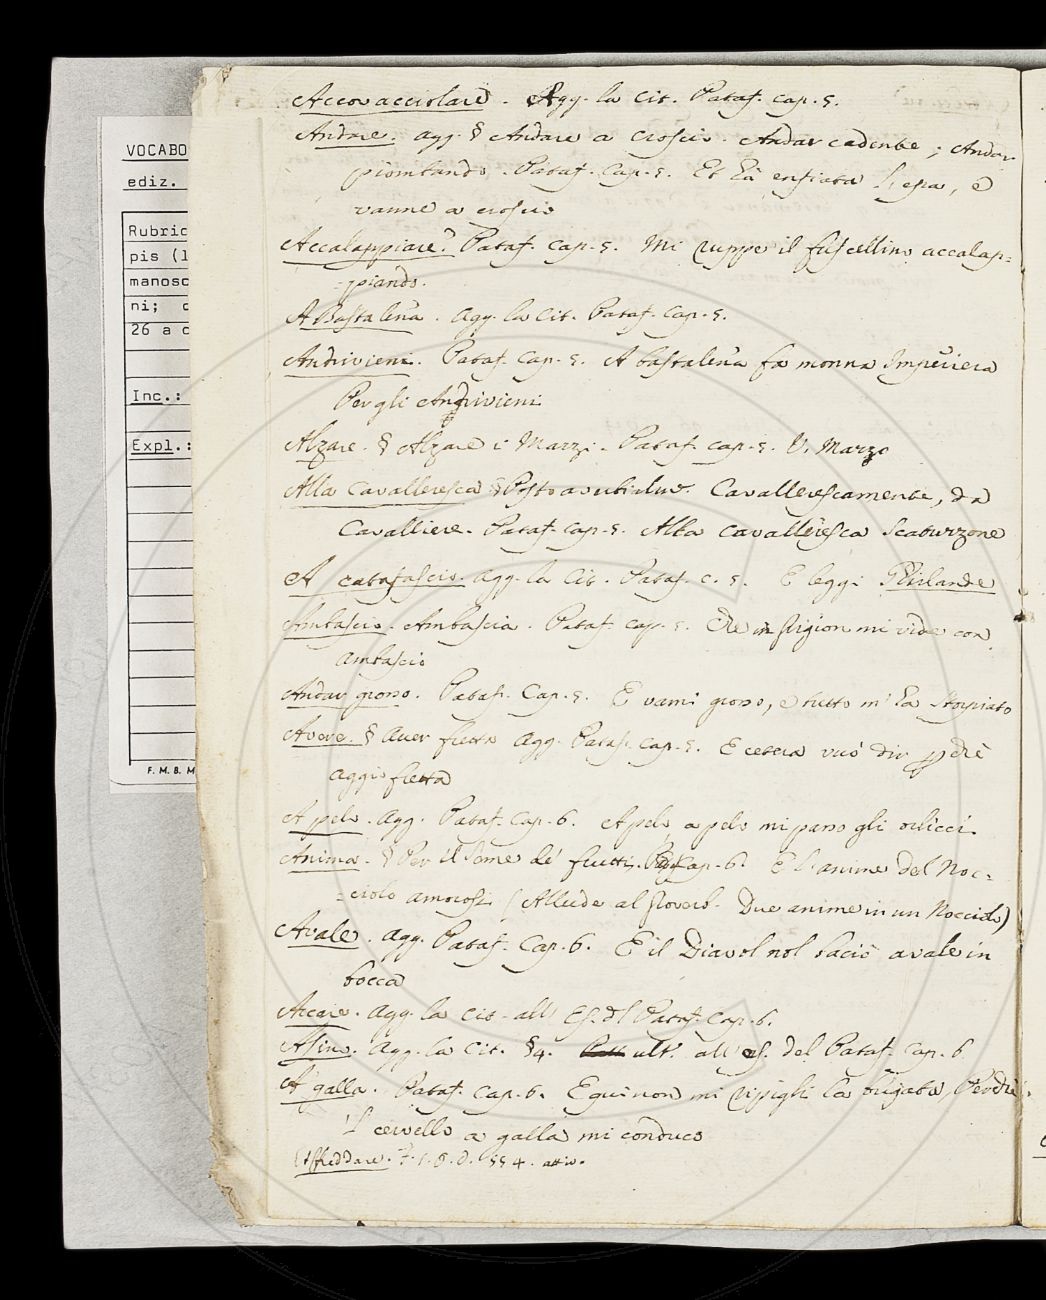 VOCABO
ediz.
Rubric
pis (l
manosc
ni; c
26 a c
Inc.:
Expl.:
F. M. B. M
Accovacciolare. Agg. la cit. Pataf. Cap. 5.
Andare. agg. § Andare a croscio. Andar cadente; Andar
piombando. Pataf. Cap. 5. Et ha enfiata l'epa, e
vanne a croscio
Accalappiare. Pataf. Cap. 5. Mi ruppe il fuscellino accalap=
=piando.
A Bastalena. Agg. la cit. Pataf. Cap. 5.
Andirivieni. Pataf. Cap. 5. A bastalena fa monna
Per gli Andirivieni
Alzare. § Alzare i Marzi. Pataf. Cap. 5. V. Marzo
Alla Cavalleresca § Posto avverbialm. Cavallerescamente, da
Cavalliere. Pataf. Cap. 5. Alla cavalleresca Scaburzone
A catafascio. agg. la cit. Pataf. C. 5. E leggi Ghirlande
Ambascio. Ambascia. Pataf. Cap. 5. Che in prigion mi vide con
ambascio
Andar grosso. Pataf. Cap. 5. E vami grosso, e tutto m'ha storpiato
Avere. § Aver fretta Agg. Pataf. Cap. 5. E cetera vuo' dir perchè
aggio fretta
A pelo. Agg. Pataf. Cap. 6. A pelo a pelo mi paro gli orlicci.
Anima. § Per il seme de' frutti. Pataf. Cap. 6. E l'anime del Noc=
=ciolo amorosi (Allude al proverb. Due anime in un Nocciolo)
Avale. Agg. Pataf. Cap. 6. E il Diavol nol baciò avale in
bocca
Agg. la cit. all' Es. del Pataf. Cap. 6.
Asino. Agg. la cit. §4. ult. all' es. del Pataf. Cap. 6.
A galla. Pataf. Cap. 6. E qui non mi ripigli la brigata, Perchè
'l cervello a galla mi conduco
Affreddare. §4. attiv.